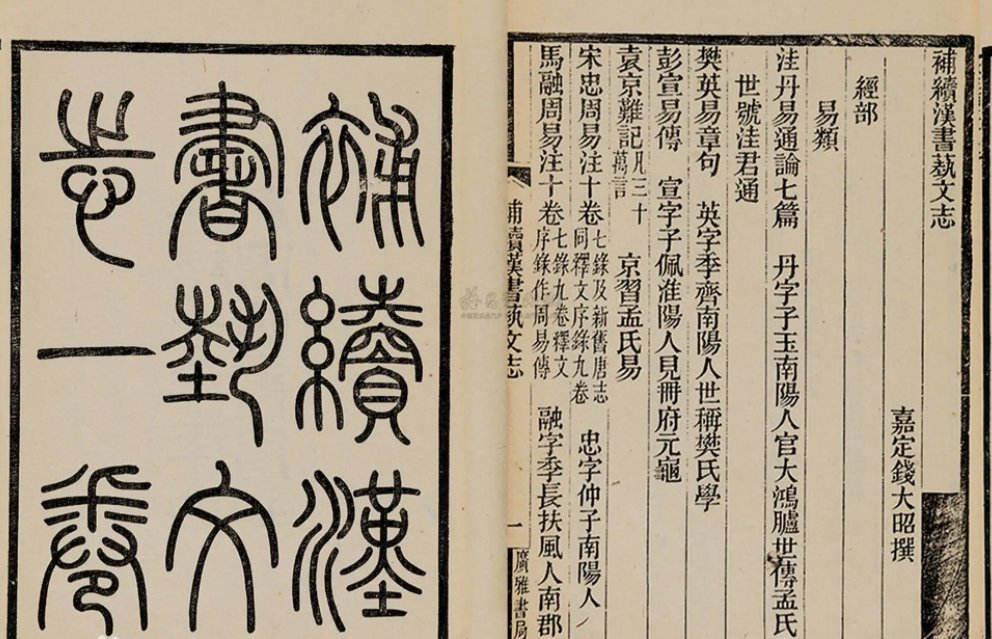 補續漢
書藝文
志一卷
補續漢書蓺文志
嘉定錢大昭撰
經部
易類
洼丹易通論七篇 丹字子玉南陽人官大鴻臚世傳孟氏
世號洼君通
樊英易章句 英字季齊南陽人世稱樊氏學
彭宣易傳 宣字子佩淮陽人見冊府元龜
袁京難記凡三十萬言 京習孟氏易
宋忠周易注十卷七錄及新舊唐志同釋文序錄九卷 忠字仲子南陽人
馬融周易注十卷七錄九卷釋文序錄作周易傳 融字季長扶風人南郡
補續漢書蓺文志 一 廣雅書局